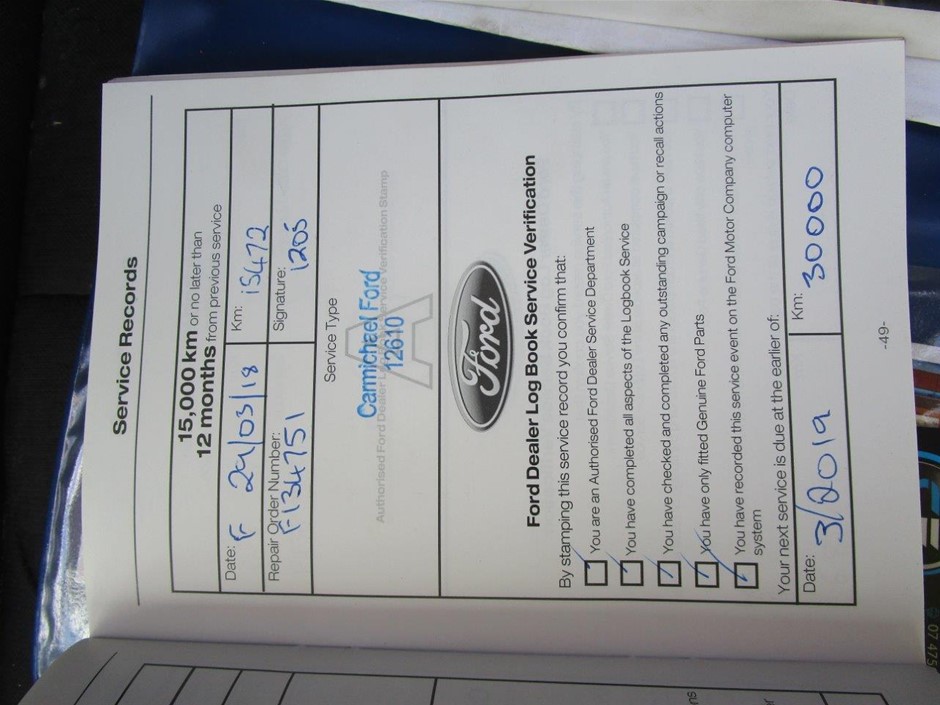 Service Records
15,000 km or no later than
12 months from previous service
Date: F 29/03/18 Km: 15472
Repair Order Number: Signature:
F134751 1205
Service Type
Carmichael Ford
12610
Authorised Ford Dealer Service Verification Stamp
Ford
Ford Dealer Log Book Service Verification
By stamping this service record you confirm that:
You are an Authorised Ford Dealer Service Department
You have completed all aspects of the Logbook Service
You have checked and completed any outstanding campaign or recall actions
You have only fitted Genuine Ford Parts
You have recorded this service event on the Ford Motor Company computer
system
Your next service is due at the earlier of:
Date: 3/2019 Km: 30000
-49-
07 475